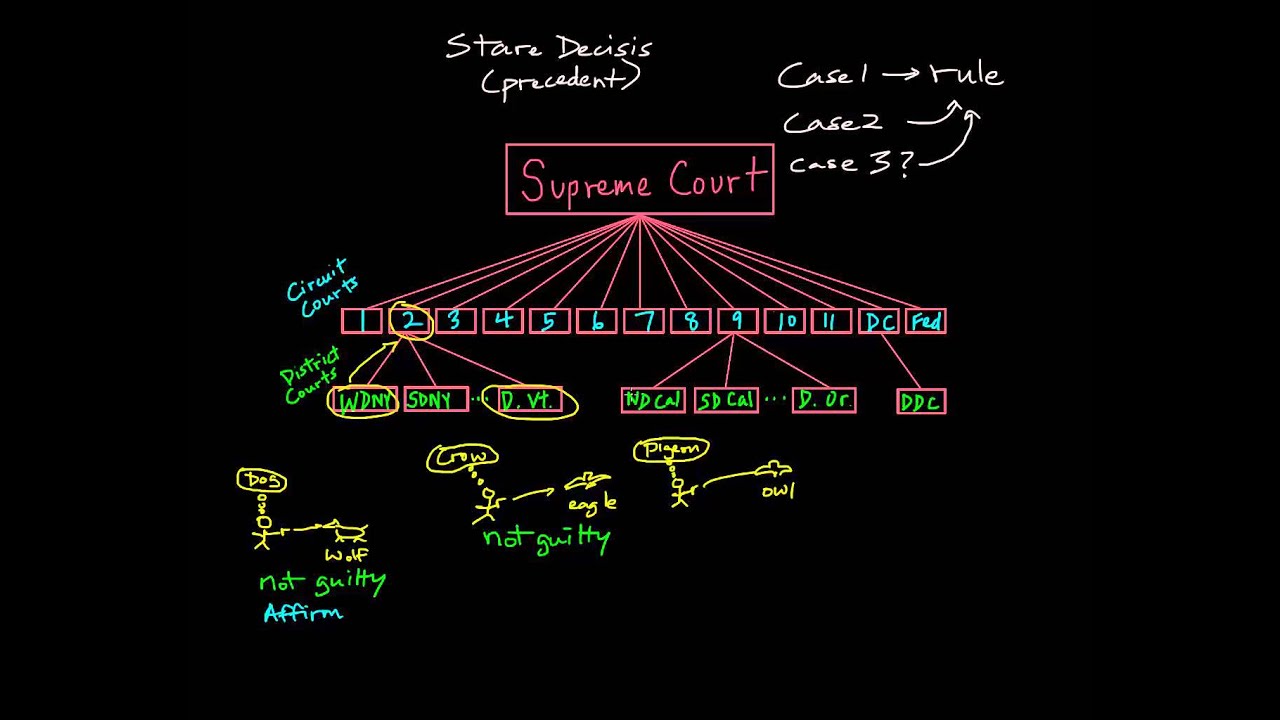 Stare Decisis
(precedent)
Case 1 → rule
Case 2
case 3?
Supreme Court
Circuit
Courts
1 2 3 4 5 6 7 8 9 10 11 DC Fed
District
Courts
WDNY SDNY ... D. Vt. NDCal SDCal ... D. Or. DDC
Dog
wolf
not guilty
Affirm
Crow
eagle
not guilty
Pigeon
owl